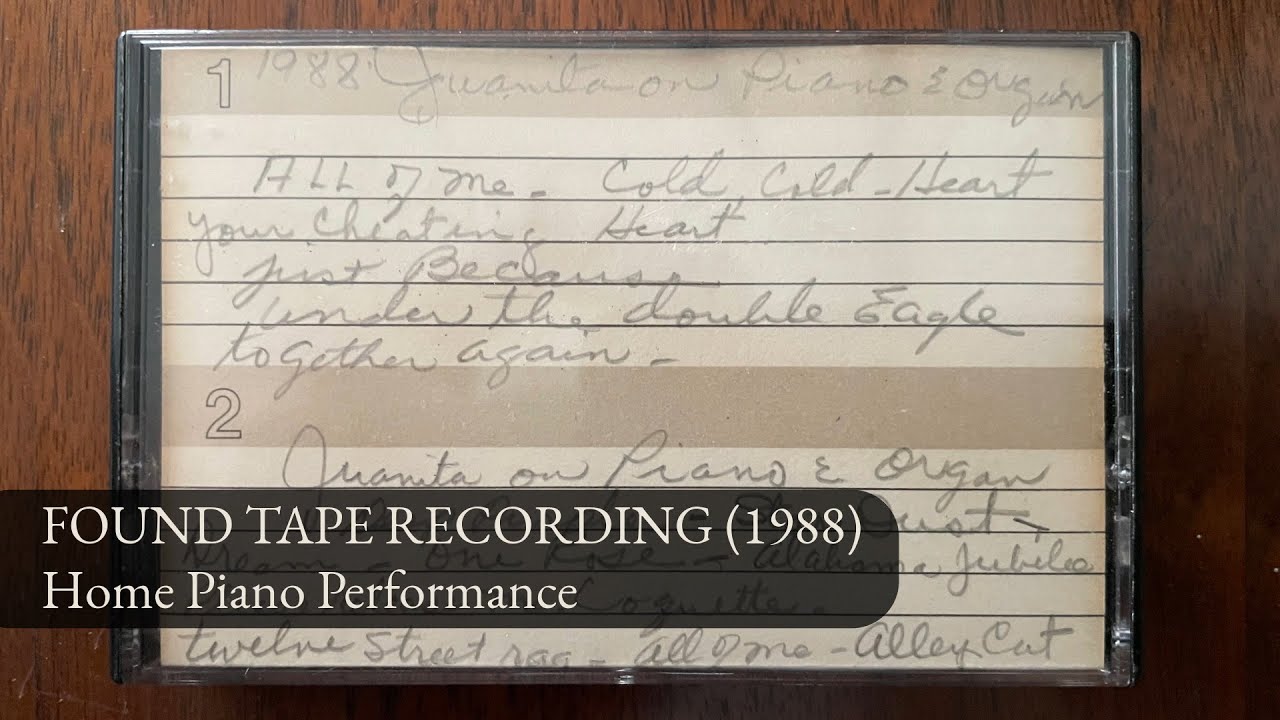 1 1988 Juanita on Piano & Organ
ALL of me - Cold, Cold - Heart
your Cheating Heart
just Because
under the double Eagle
together again -
2
Juanita on Piano & Organ
Dust
FOUND TAPE RECORDING (1988)
Dream - One Rose - Alabama Jubilee
Home Piano Performance
Coquette.
twelve Street rag - All of me - Alley Cat